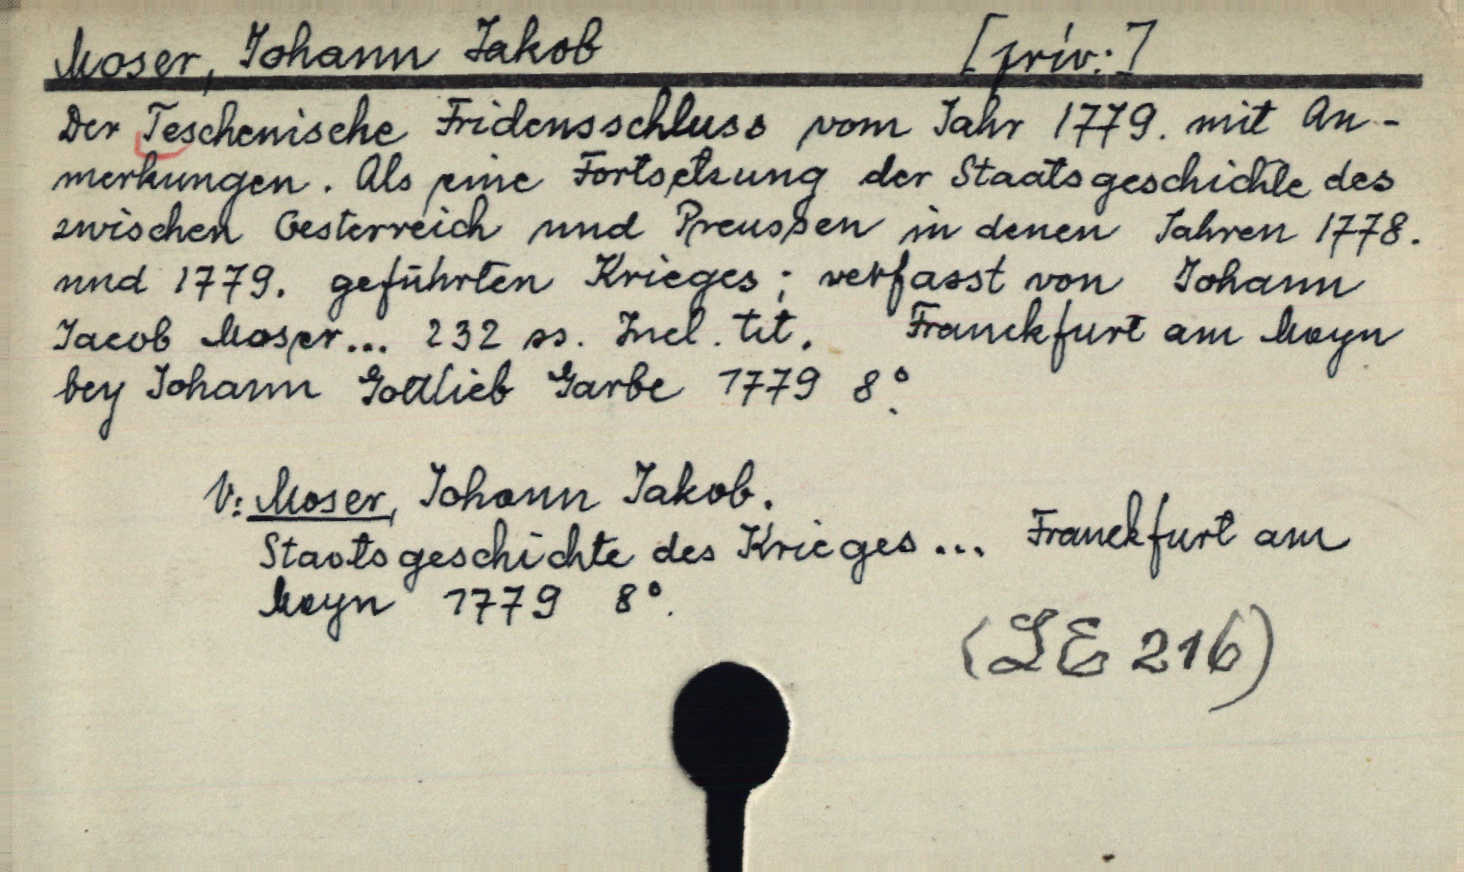 Moser, Johann Jakob [priv:]
Der Teschenische Fridensschluss vom Jahr 1779. mit An-
merkungen. Als eine Fortsetzung der Staatsgeschichte des
zwischen Oesterreich und Preussen in denen Jahren 1778.
und 1779. geführten Krieges; verfasst von Johann
Jacob Moser... 232 ss. Incl. tit. Franckfurt am Mayn
bey Johann Gottlieb Garbe 1779 8°.
V: Moser, Johann Jakob.
Staatsgeschichte des Krieges... Franckfurt am
Mayn 1779 8°.
(LE 216)